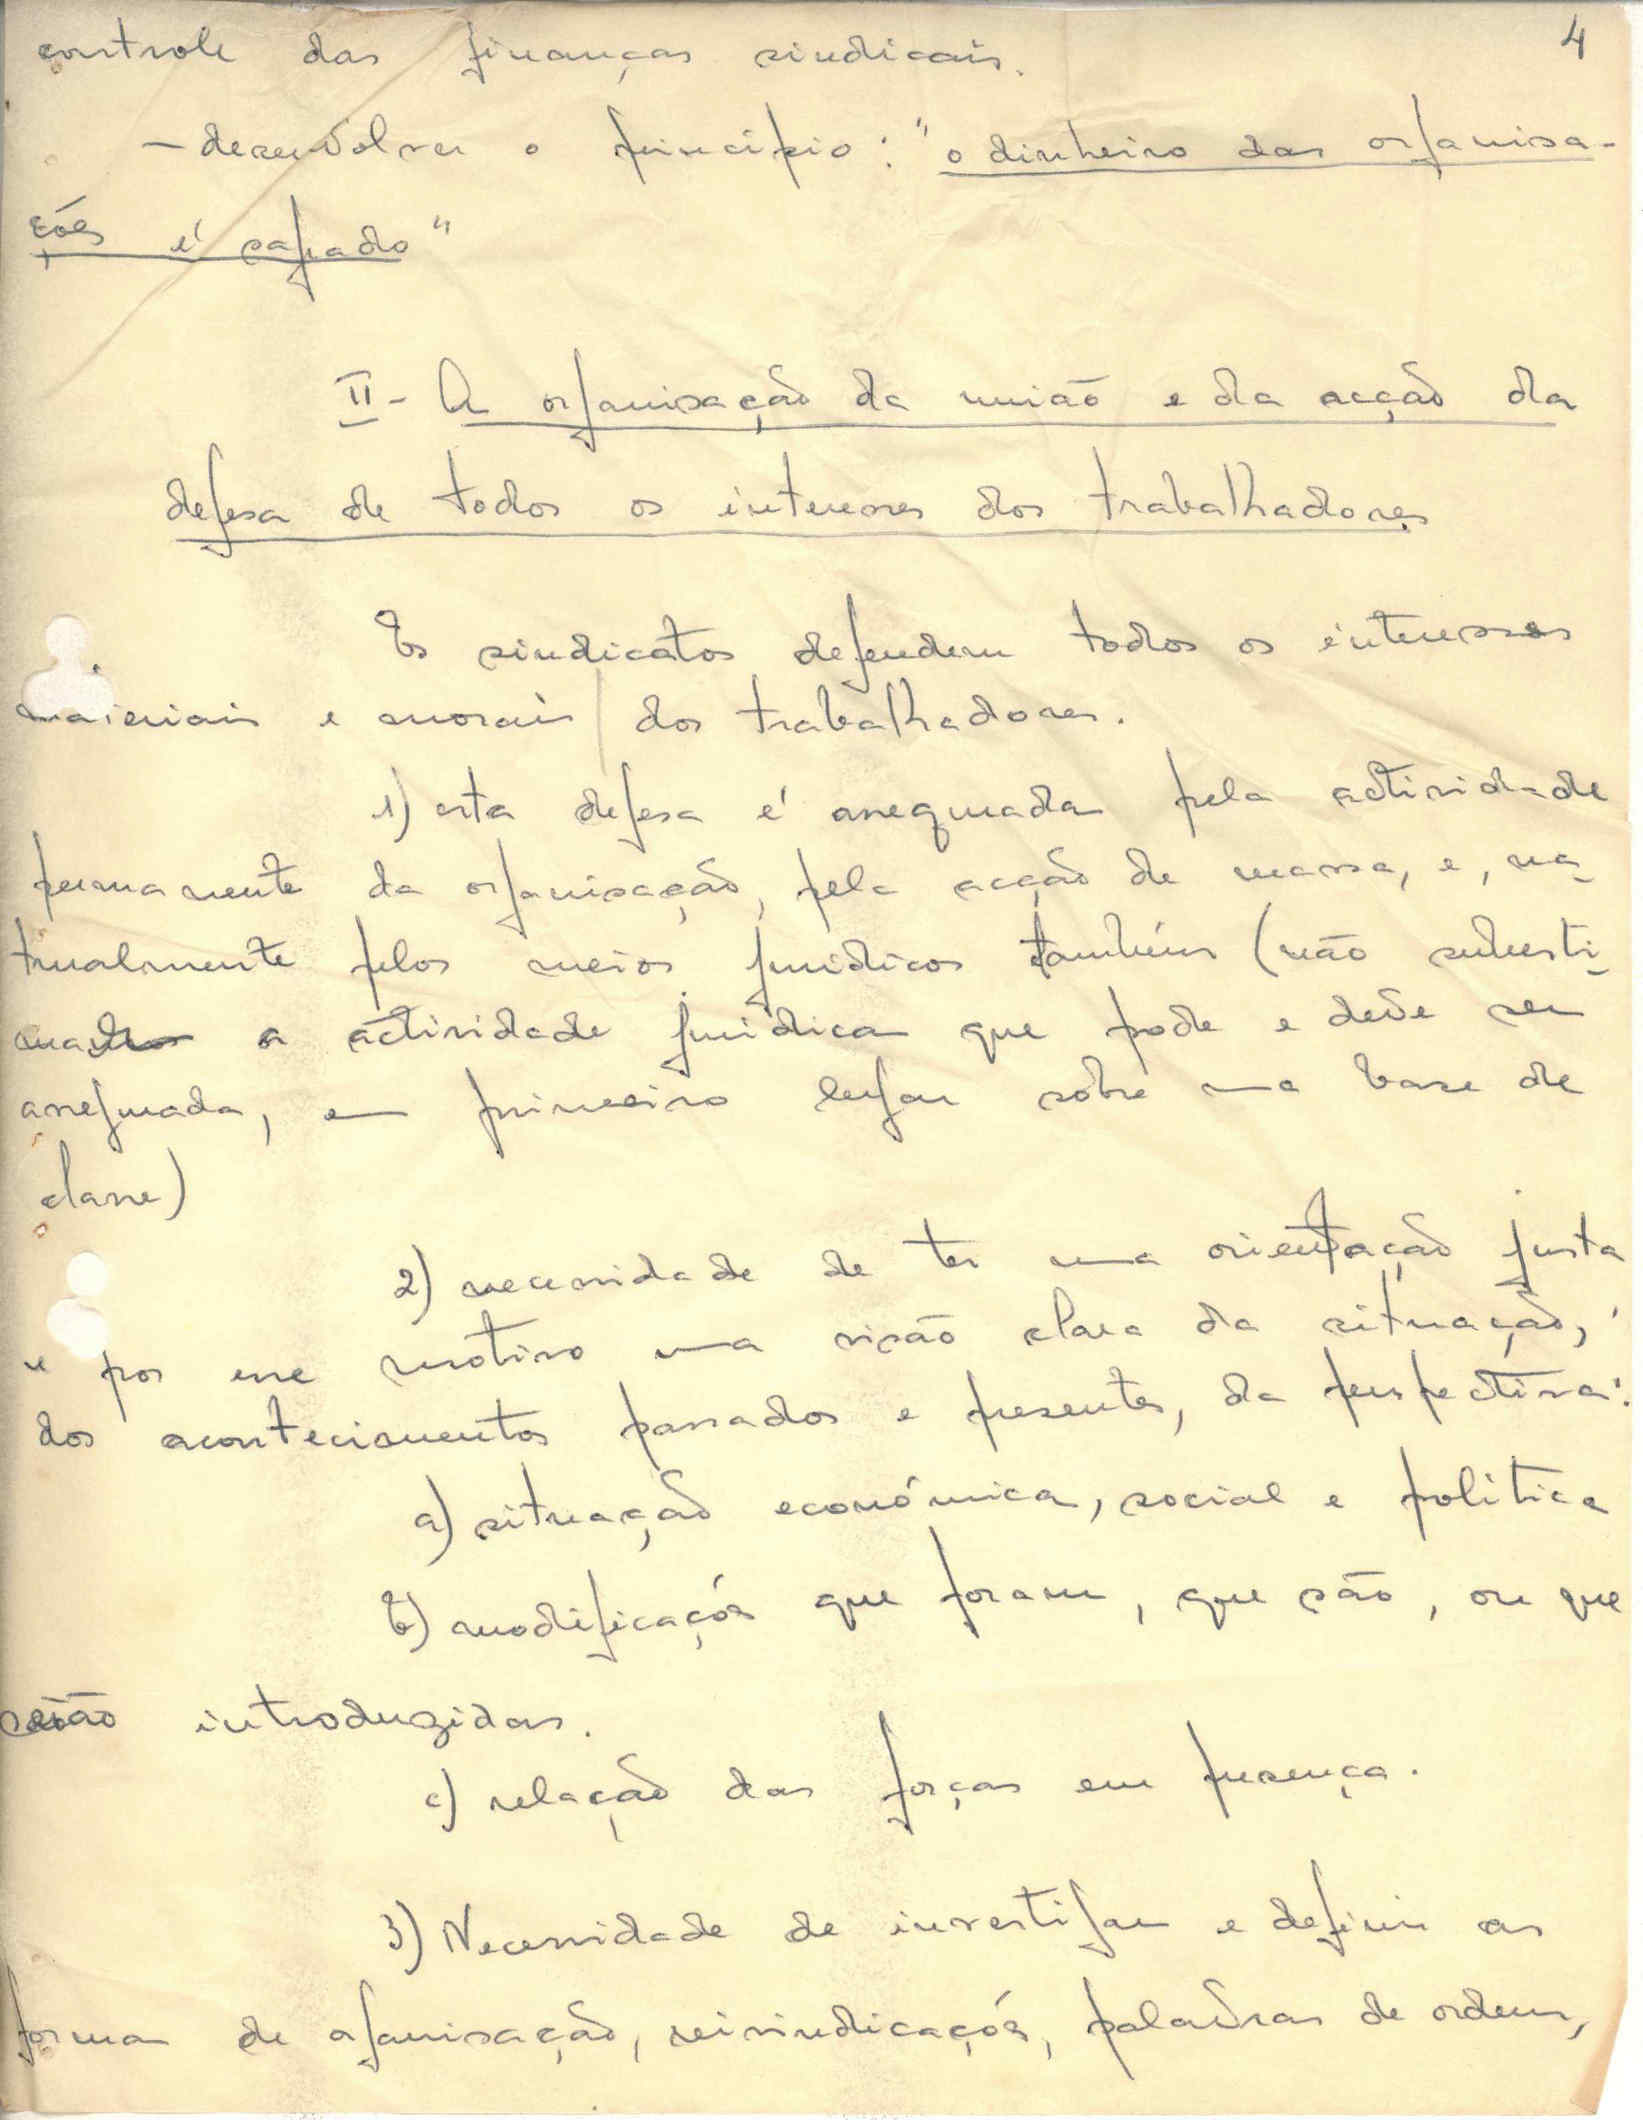 4
controle das finanças sindicais.
– desenvolver o princípio: "o dinheiro das organisa-
ções é sagrado"
II - A organisação da união e da acção da
defesa de todos os interesses dos trabalhadores
Os sindicatos defendem todos os interesses
materiais e morais dos trabalhadores.
1) esta defesa é assegurada pela actividade
permanente da organisação, pela acção de massa, e, na-
tualmente pelos meios jurídicos também (não subesti-
mando a actividade jurídica que pode e deve ser
assegurada, em primeiro lugar sobre uma base de
classe)
2) necessidade de ter uma orientação justa
e por esse motivo uma visão clara da situação,
dos acontecimentos passados e presentes, da perspectiva:
a) situação económica, social e política
b) modificações que foram, que são, ou que
serão introduzidas.
c) relação das forças em presença.
3) Necessidade de investigar e definir as
formas de organisação, reivindicações, palavras de ordem,